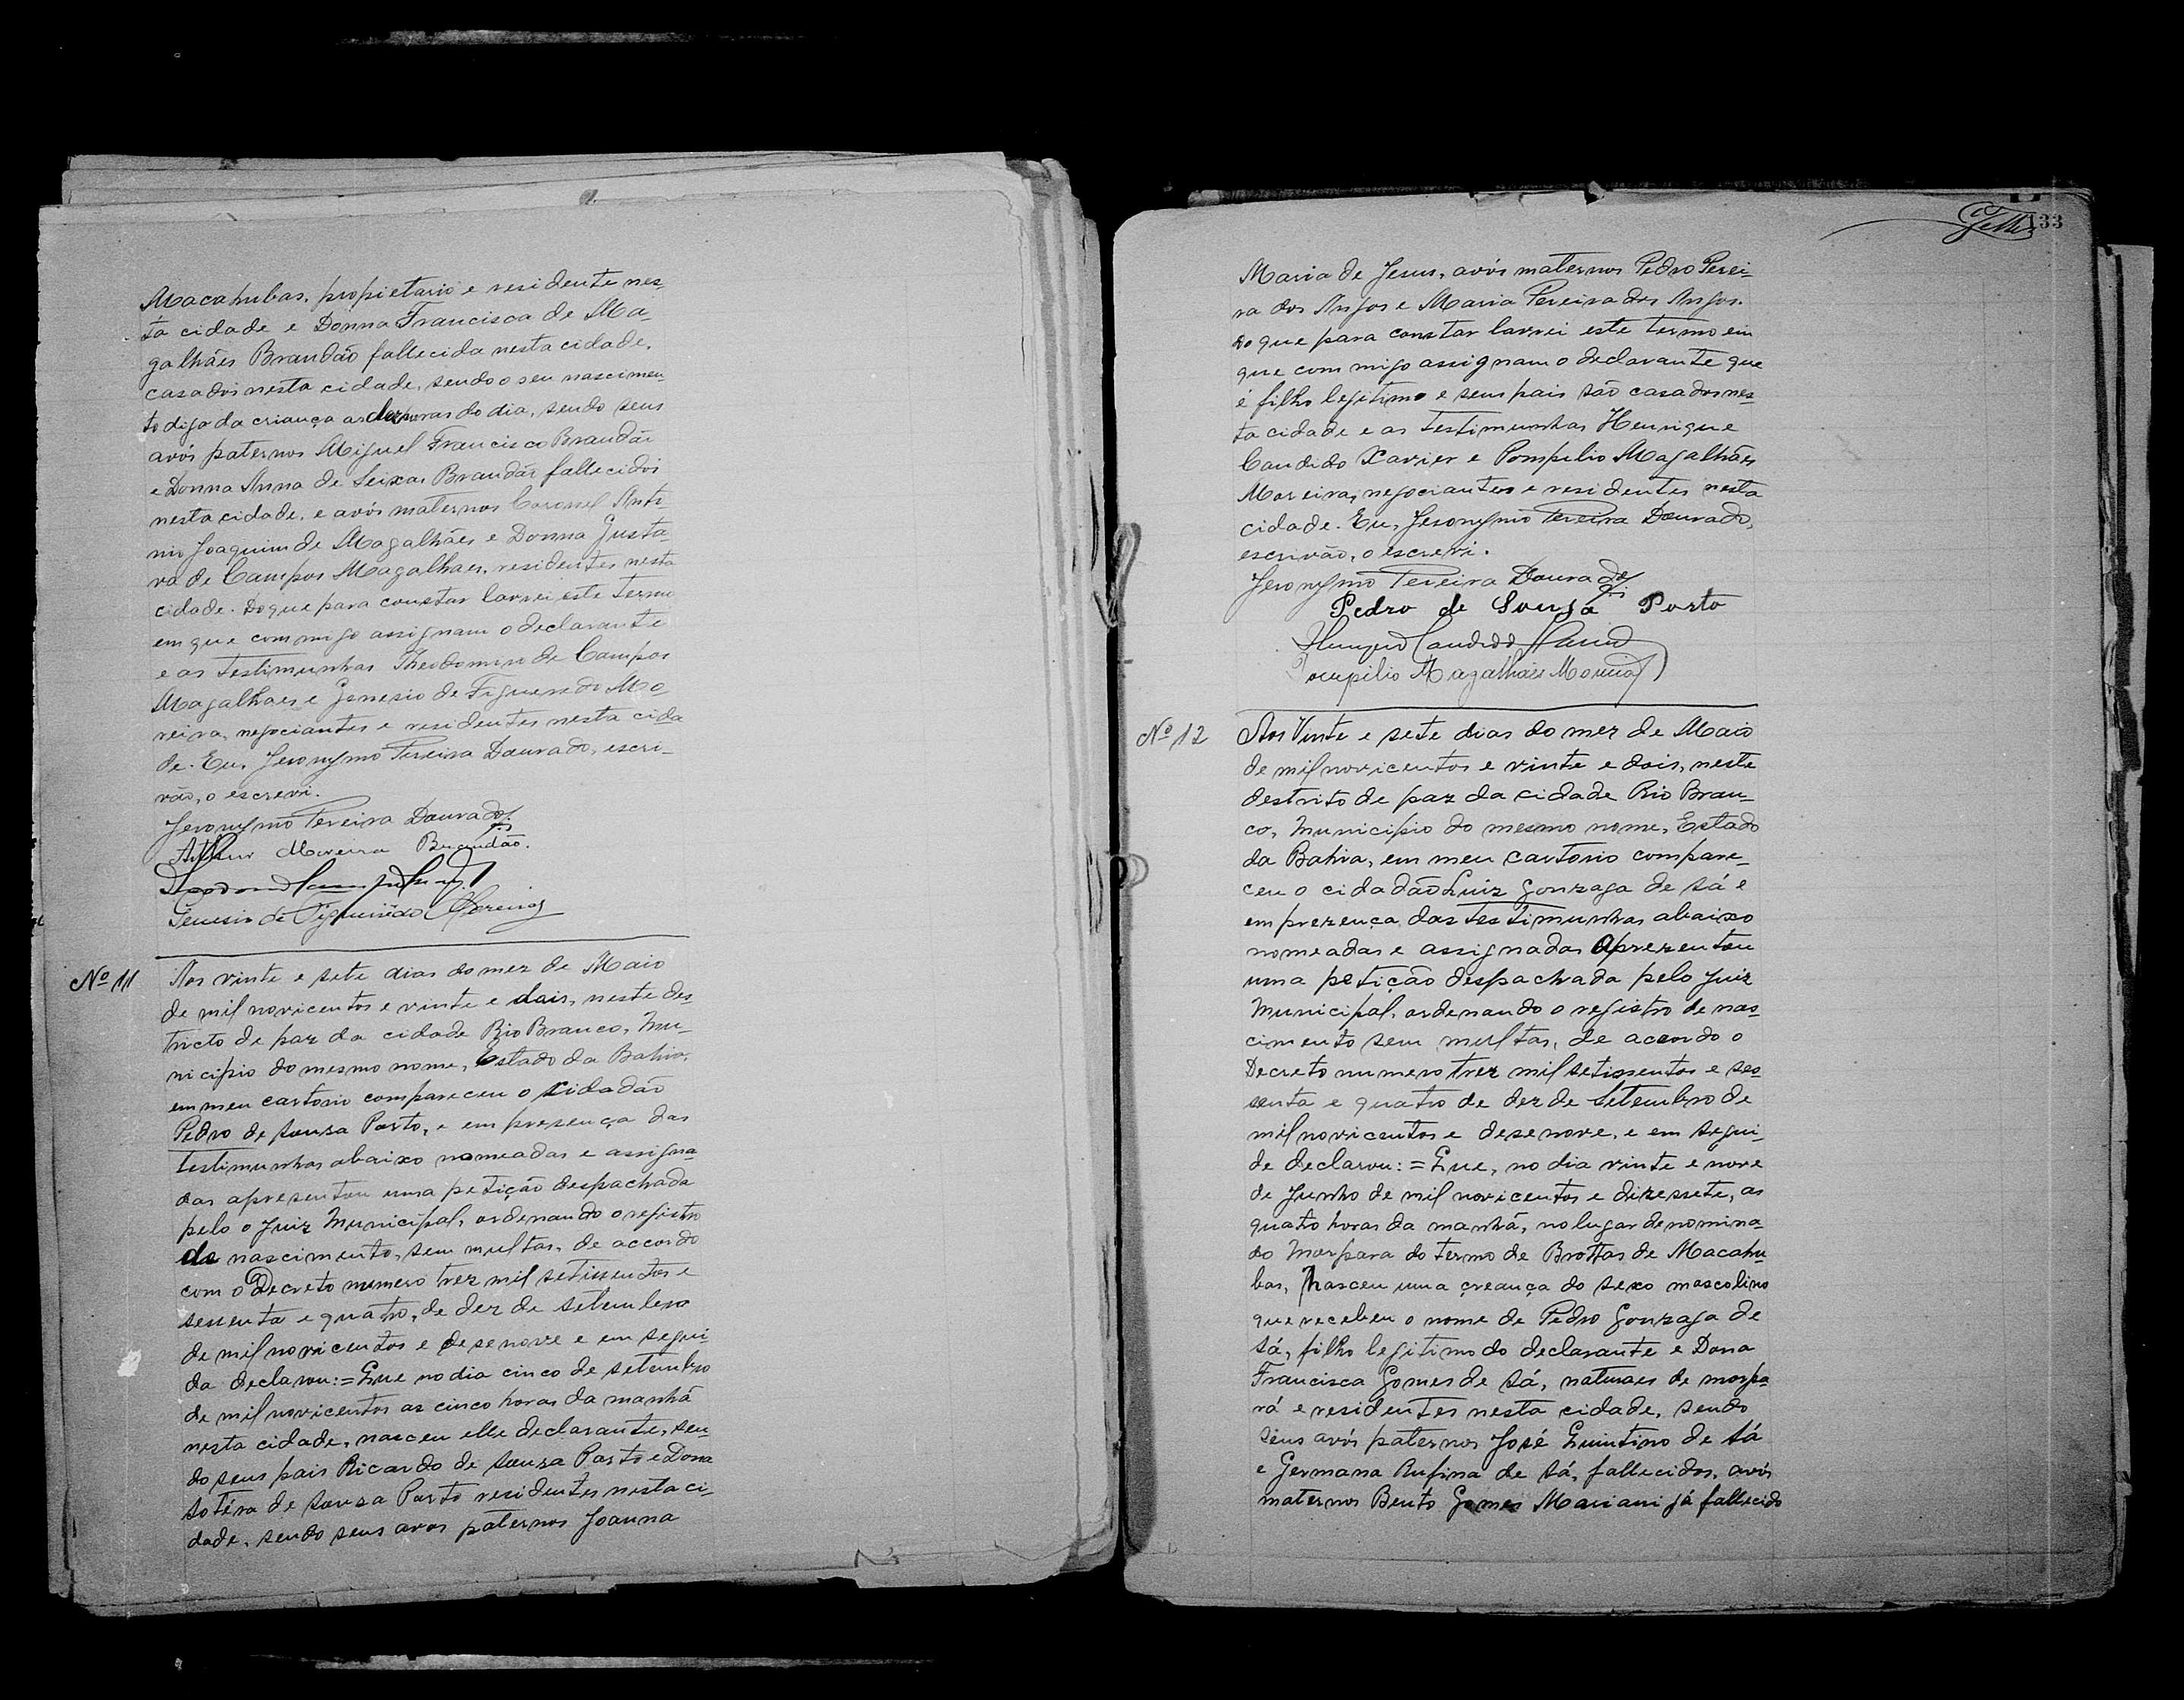 Macahubas, propietario e residente nes-
ta cidade e Donna Francisca de Ma-
galhães Brandão fallecida nesta cidade,
casados nesta cidade, sendo o seu nascimen-
to digo da criança as dez horas do dia, sendo seus
avós paternos Miguel Francisco Brandão
e Donna Anna de Seixas Brandão fallecidos
nesta cidade, e avós maternos Coronel Anto-
nio Joaquim de Magalhães e Donna Gusta-
va de Campos Magalhaes, residentes nesta
cidade. Do que para constar lavrei este termo
em que commigo assignam o declarante
e as testimunhas Theodomiro de Campos
Magalhaes e Genesio de Figueredo Mo-
reira, negociantes e residentes nesta cida
de. Eu, Jeronymo Pereira Dourado, escri-
vão, o escrevi.
Jeronymo Pereira Dourado
Arthur Moreira Brandão.
Genesio de Figueirêdo Moreira
Nº 11
Aos vinte e sete dias do mez de Maio
de mil novicentos e vinte e dois, neste des-
tricto de paz da cidade Rio Branco, Mu-
nicipio do mesmo nome, Estado da Bahia,
em meu cartorio compareceu o cidadão
Pedro de Souza Porto, e em presença das
testimunhas abaixo nomeadas e assigna-
das apresentou uma petição despachada
pelo o Juiz Municipal, ordenando o registro
de nascimento, sem multas, de accordo
com o Decreto numero trez mil setissentos e
sessenta e quatro, de dez de setembro
de mil novicentos e desenove e em segui-
da declarou:=Que no dia cinco de setembro
de mil novicentos as cinco horas da manhã
nesta cidade, nasceu elle declarante, sen-
do seus pais Ricardo de Souza Porto e Dona
Sotéra de Souza Porto residentes nesta ci-
dade, sendo seus avos paternos Joanna
133
Maria de Jesus, avós maternos Pedro Perei-
ra dos Anjos e Maria Pereira dos Anjos.
Do que para constar lavrei este termo em
que com migo assignam o declarante que
é filho legitimo e seus pais são casados nes-
ta cidade e as testimunhas Henrique
Candido Xavier e Pompilio Magalhães
Moreira, negociantes e residentes nesta
cidade. Eu, Jeronymo Pereira Dourado,
escrivão, o escrevi.
Jeronymo Pereira Dourado
Pedro de Souza Porto
Candido
Pompilio Magalhães Moreira
Nº 12
Aos Vinte e sete dias do mez de Maio
de mil novicentos e vinte e dois, neste
destrito de paz da cidade Rio Bran-
co, Municipio do mesmo nome, Estado
da Bahia, em meu cartorio compare-
ceu o cidadão Luiz Gonzaga de Sá e
em prezença das testimunhas abaixo
nomeadas e assignadas Aprezentou
uma petição despachada pelo Juiz
Municipal, ordenando o registro de nas-
cimento sem multas, de acordo o
Decreto numero trez mil setissentos e ses-
senta e quatro de dez de Setembro de
mil novicentos e desenove, e em segui-
de declarou:=Que, no dia vinte e nove
de Junho de mil novicentos e dizessete, as
quatro horas da manhã, no lugar denomina-
do Morpara do termo de Brottas de Macahu-
bas, Nasceu uma creança do sexo mascolino
que recebeu o nome de Pedro Gonzaga de
Sá, filho legitimo do declarante e Dona
Francisca Gomes de Sá, naturaes de morpa-
rá e residentes nesta cidade, sendo
seus avós paternos José Quintino de Sá
e Germana Rufina de Sá, fallecidos, avós
maternos Bento Gomes Mariani já fallecido